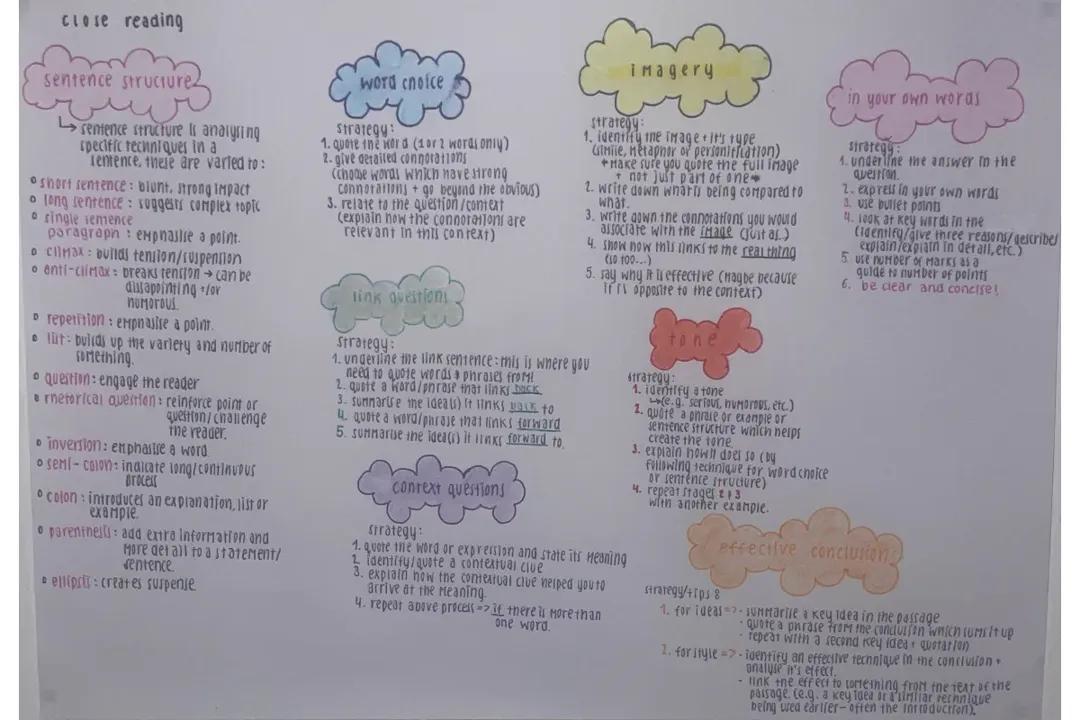 close reading
sentence structure
↳ sentence structure is analysing
specific techniques in a
sentence, these are varied to:
° short sentence: blunt, strong impact
° long sentence: suggests complex topic
° single sentence
paragraph: emphasise a point.
° climax: builds tension/suspension
° anti-climax: breaks tension → can be
disapointing +/or
humorous.
° repetition: emphasise a point.
° list: builds up the variety and number of
something.
° question: engage the reader
° rhetorical question: reinforce point or
question/challenge
the reader.
° inversion: emphasise a word.
° semi-colon: indicate long/continuous
process
° colon: introduces an explanation, list or
example.
° parenthesis: add extra information and
more detail to a statement/
sentence.
° ellipsis: creates suspense.
word choice
strategy:
1. quote the word (1 or 2 words only)
2. give detailed connotations
(choose words which have strong
connotations + go beyond the obvious)
3. relate to the question/context
(explain how the connotations are
relevant in this context)
link questions
strategy:
1. underline the link sentence: this is where you
need to quote words + phrases from!
2. quote a word/phrase that links back
3. summarise the idea(s) it links back to
4. quote a word/phrase that links forward
5. summarise the idea(s) it links forward to.
context questions
strategy:
1. quote the word or expression and state its meaning
2. identify/quote a contextual clue
3. explain how the contextual clue helped you to
arrive at the meaning.
4. repeat above process => if there is more than
one word.
imagery
strategy:
1. identify the image + it's type
(simile, metaphor or personification)
*make sure you quote the full image
+ not just part of one*
2. write down what is being compared to
what.
3. write down the connotations you would
associate with the image (just as..)
4. show how this links to the real thing
(so too...)
5. say why it is effective (maybe because
it is opposite to the context)
tone
strategy:
1. identify a tone
↳(e.g. serious, humorous, etc.)
2. quote a phrase or example or
sentence structure which helps
create the tone.
3. explain how it does so (by
following technique for word choice
or sentence structure)
4. repeat stages 2 + 3
with another example.
in your own words
strategy:
1. underline the answer in the
question.
2. express in your own words
3. use bullet points
4. look at key words in the
(identify/give three reasons/describe/
explain/explain in detail, etc.)
5. use number of marks as a
guide to number of points
6. be clear and concise!
effective conclusion
strategy/tips :
1. for ideas => - summarise a key idea in the passage
- quote a phrase from the conclusion which sums it up
- repeat with a second key idea + quotation
2. for style => - identify an effective technique in the conclusion +
analyse it's effect.
- link the effect to something from the text of the
passage. (e.g. a key idea or a similar technique
being used earlier - often the introduction).